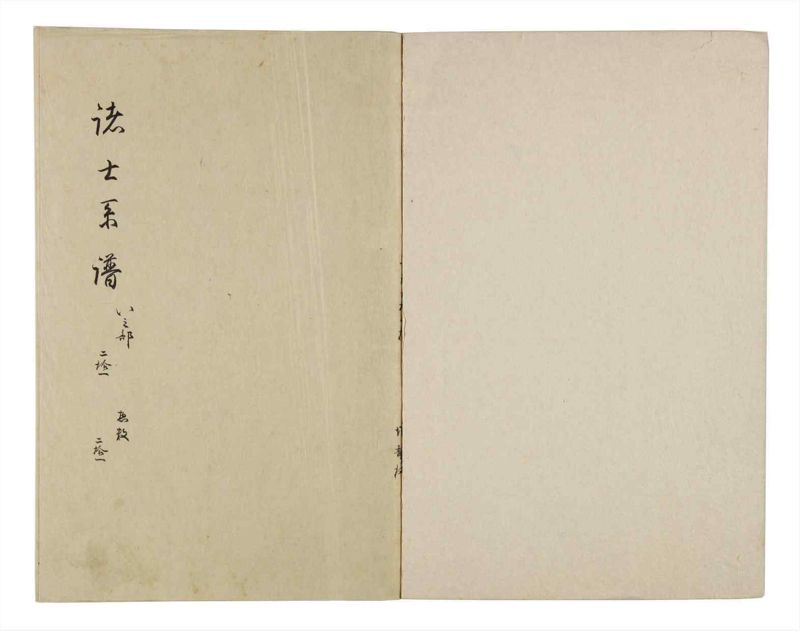 諸士系譜
い之部
二拾一
惣数
二拾一